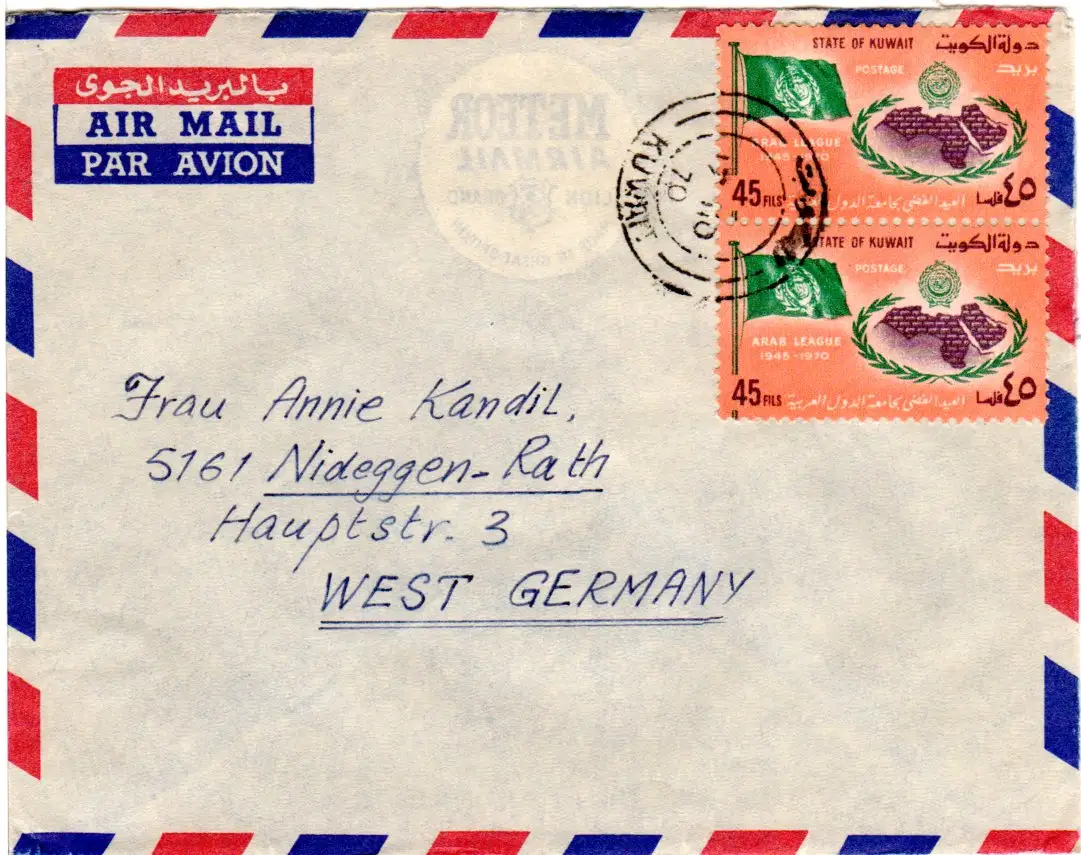 بالبريد الجوى
AIR MAIL
PAR AVION
METEOR
AIRMAIL
LION BRAND
KUWAIT
70
STATE OF KUWAIT دولة الكويت
POSTAGE بريد
ARAB LEAGUE
1945-1970
45 FILS ٤٥ فلسا
العيد الفضى لجامعة الدول العربية
STATE OF KUWAIT دولة الكويت
POSTAGE بريد
ARAB LEAGUE
1945-1970
45 FILS ٤٥ فلسا
العيد الفضى لجامعة الدول العربية
Frau Annie Kandil,
5161 Nideggen-Rath
Hauptstr. 3
WEST GERMANY